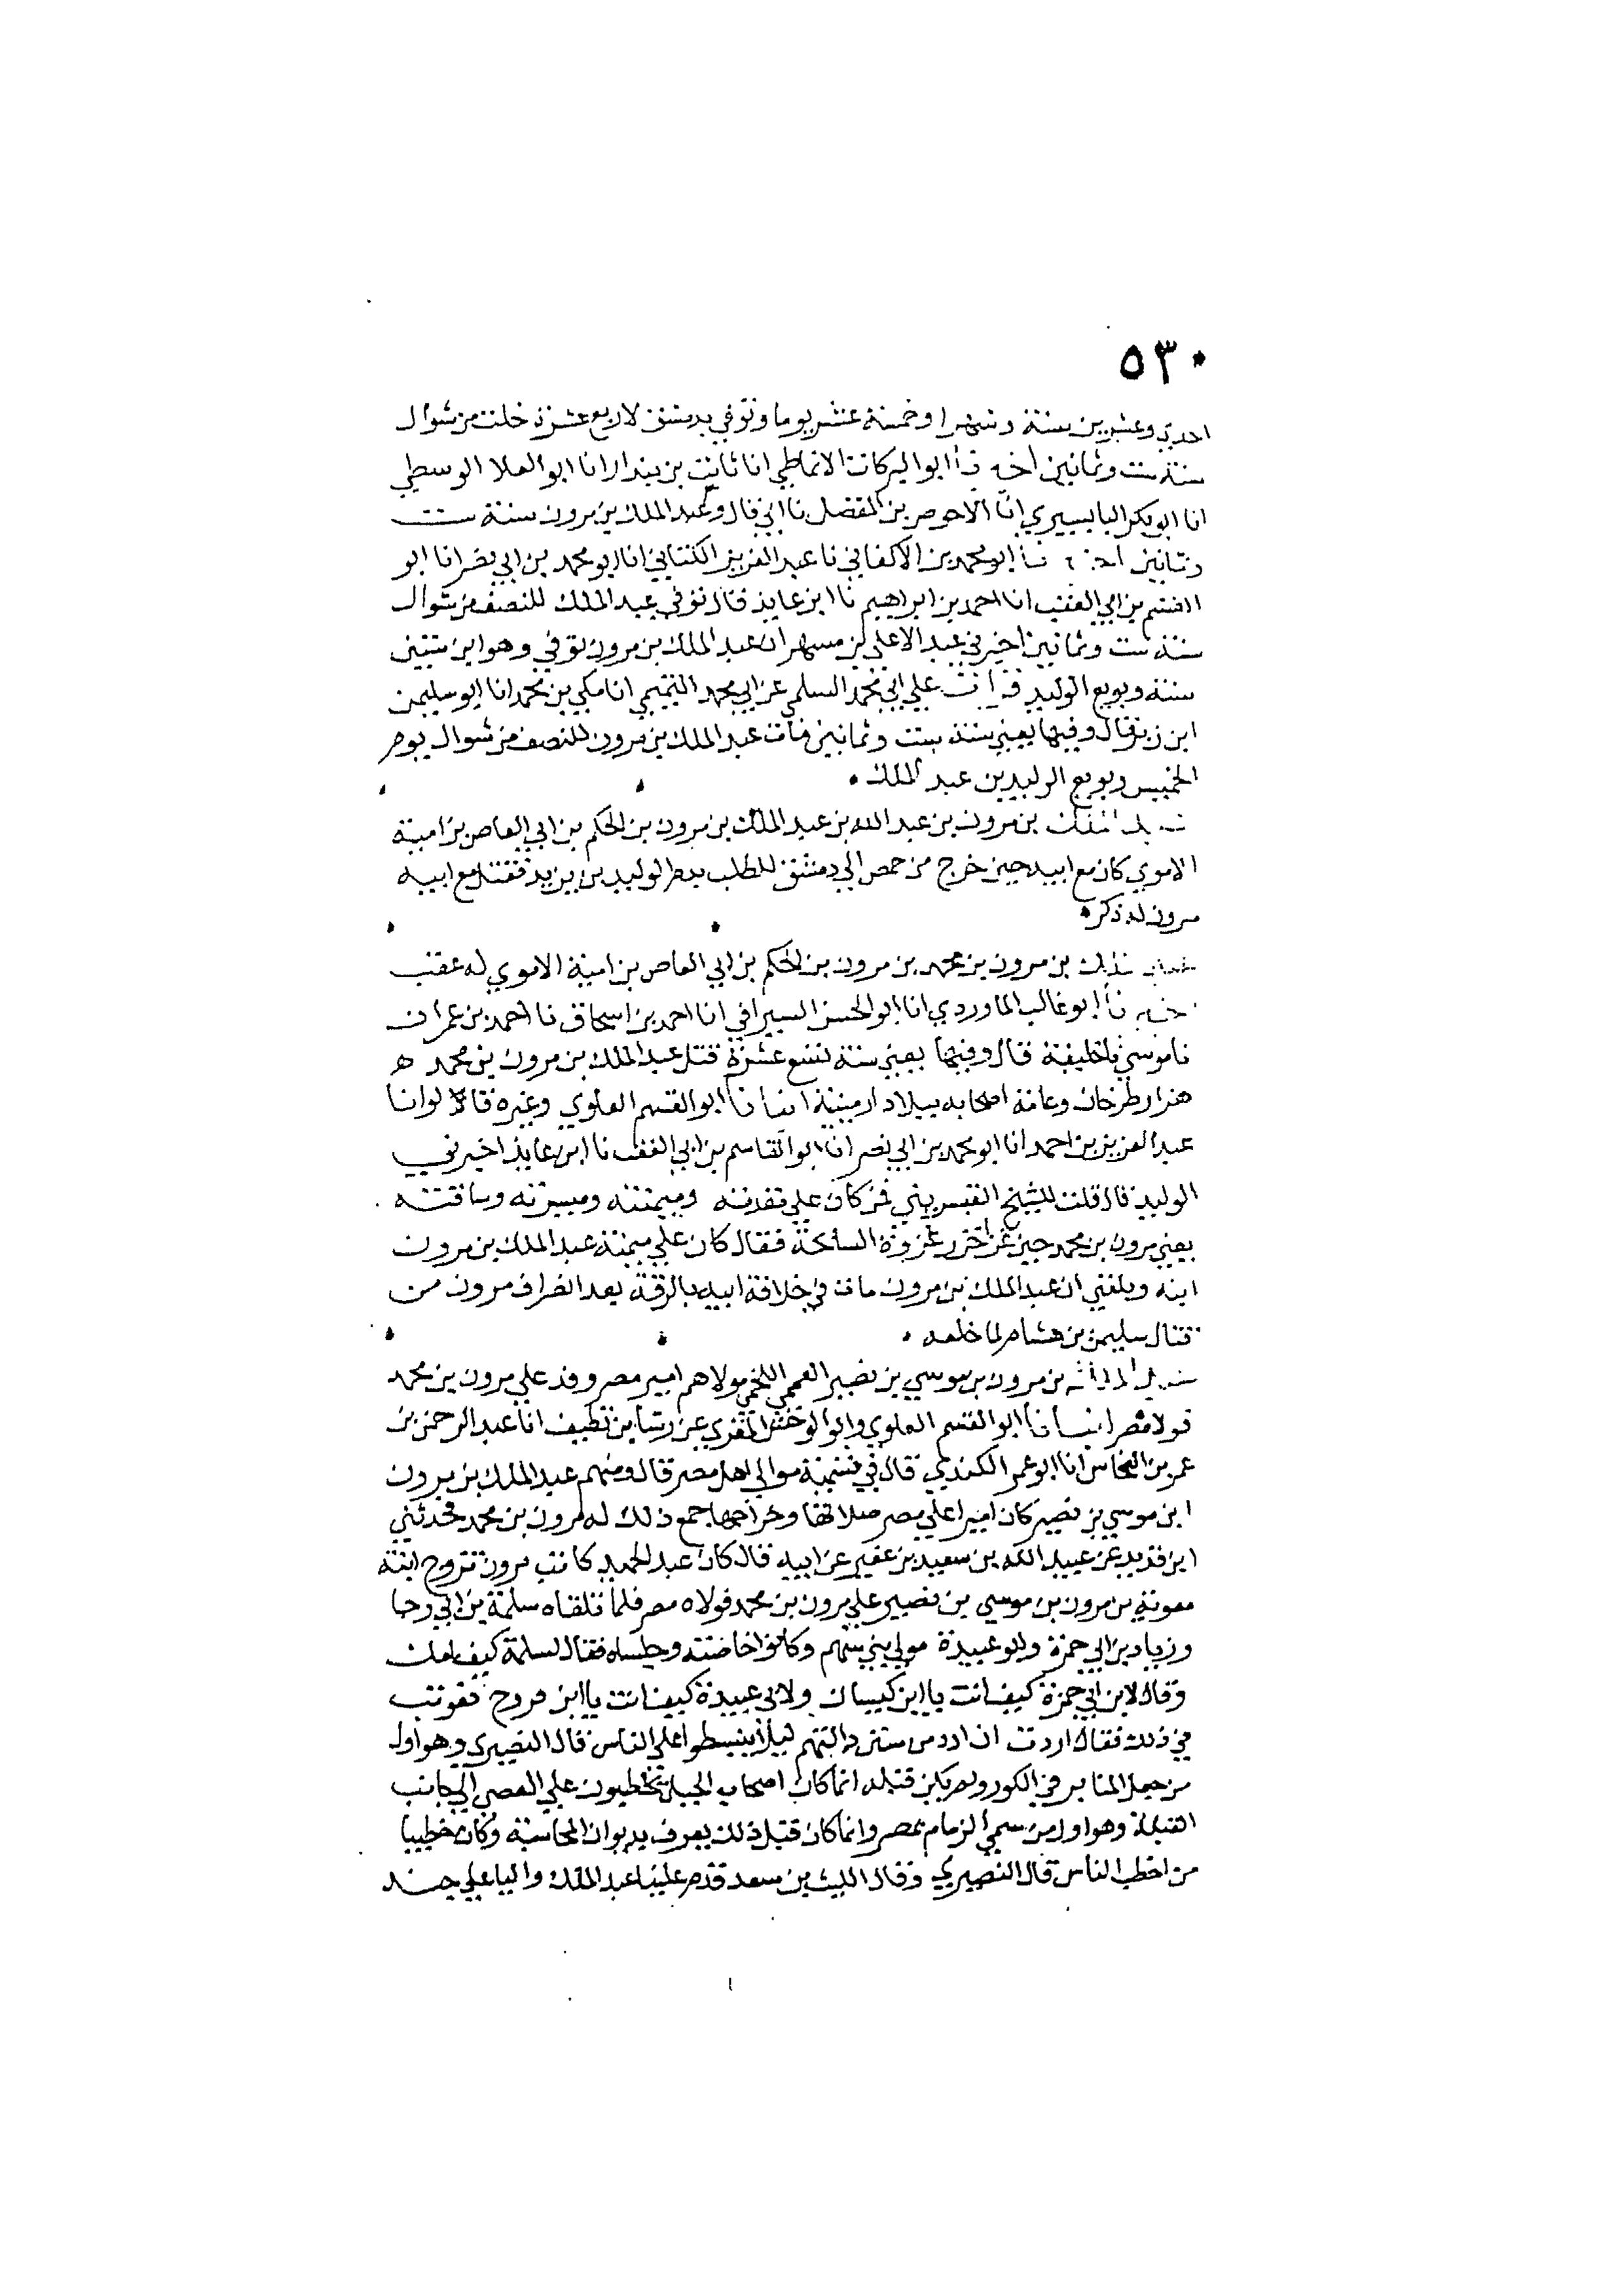 ٥٣٠
احدي وعشرين سنة وشهرا وخمسة عشر يوما وتوفي بدمشق لاربع عشرة خلت من شوال
سنة ست وثمانين اخبرنا ابو البركات الانماطي انا ثابت بن بندار انا ابو العلا الوسطي
انا ابو بكر البابسيري انا الاحوص بن المفضل نا ابي قال وعبد الملك بن مرون سنة ست
وثمانين اخبرنا ابو محمد بن الاكفاني نا عبد العزيز الكتاني انا ابو محمد بن ابي نصر انا ابو
القسم بن ابي العقب انا احمد بن ابراهيم نا ابن عايذ قال توفي عبد الملك للنصف من شوال
سنة ست وثمانين اخبرني عبد الاعلي بن مسهر ان عبد الملك بن مرون توفي وهو ابن ستين
سنة وبويع الوليد قرات علي ابي محمد السلمي عن ابي محمد التميمي انا مكي بن محمد انا ابو سليمن
ابن زبر قال وفيها يعني سنة ست وثمانين مات عبد الملك بن مرون للنصف من شوال يوم
الخميس وبويع الوليد بن عبد الملك
عبد الملك بن مرون بن عبد الله بن عبد الملك بن مرون بن الحكم بن ابي العاص بن امية
الاموي كان مع ابيه حين خرج من حمص الي دمشق للطلب بدم الوليد بن يزيد فقتل مع ابيه
مرون له ذكر
عبد الملك بن مرون بن محمد بن مرون بن الحكم بن ابي العاص بن امية الاموي له عقب
اخبرنا ابو غالب الماوردي انا ابو الحسن السيرافي انا احمد بن اسحاق نا احمد بن عمران
نا موسي نا خليفة قال وفيها يعني سنة تسع عشرة قتل عبد الملك بن مرون بن محمد
هزار طرخان وعامة اصحابه ببلاد ارمينية انبانا ابو القسم العلوي وغيره قالوا انا
عبد العزيز بن احمد انا ابو محمد بن ابي نصر انا ابو القاسم بن ابي العقب نا ابن عايذ اخبرني
الوليد قال قلت للشيخ القنسريني فمن كان علي مقدمته وميمنته وميسرته وساقته
يعني مرون بن محمد حين غزا غزوة السائحة فقال كان علي ميمنته عبد الملك بن مرون
ابنه وبلغني ان عبد الملك بن مرون مات في خلافة ابيه بالرقة بعد انصراف مرون من
قتال سليمن بن هشام لما خلعه
عبد الملك بن مرون بن موسي بن نصير اللخمي مولاهم امير مصر وفد علي مرون بن محمد
فولاه مصر انبانا ابو القسم العلوي وابو الوحش المقري عن رشا بن نظيف انا عبد الرحمن بن
عمر بن النحاس انا ابو عمر الكندي قال في تسمية موالي اهل مصر قال ومنهم عبد الملك بن مرون
ابن موسي بن نصير كان اميرا علي مصر صلاتها وخراجها جمع ذلك له مرون بن محمد فحدثني
ابن قديد عن عبيد الله بن سعيد بن عفير عن ابيه قال كان عبد الحميد كاتب مرون تزوج ابنة
معوية بن مرون بن موسي بن نصير علي مرون بن محمد فولاه مصر فلما تلقاه سلمة بن ابي رجا
وزياد بن ابي حمزة وابو عبيدة مولي بني سهم وكانوا خاصته وجلساه فقال لسلمة كيف انت
وقال لابن ابي حمزة كيف انت يا ابن كيسان ولابي عبيدة كيف انت يا ابن فروخ فعوتب
في ذلك فقال اردت ان ليلا ينبسطوا علي الناس قال النصيري وهو اول
من جعل المنابر في الكور ولم يكن قبله انما كان اصحاب الجبل يخطبون علي العصي الي جانب
القبلة وهو اول من سمي الزمام بمصر وانما كان قبل ذلك يعرف بديوان المحاسبة وكان خطيبا
من اخطب الناس قال النصيري وقال الليث بن سعد قدم علينا عبد الملك واليا علي جند